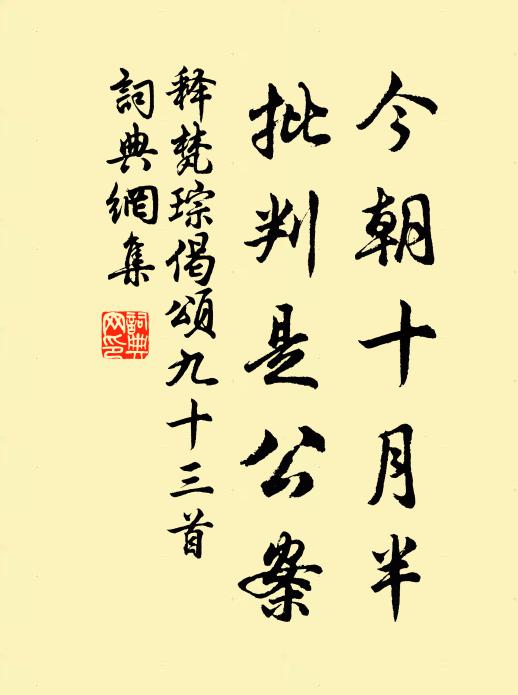 今朝十月半
批判是公案
释梵琮偈頌九十三首
詞典網集
詞典网印